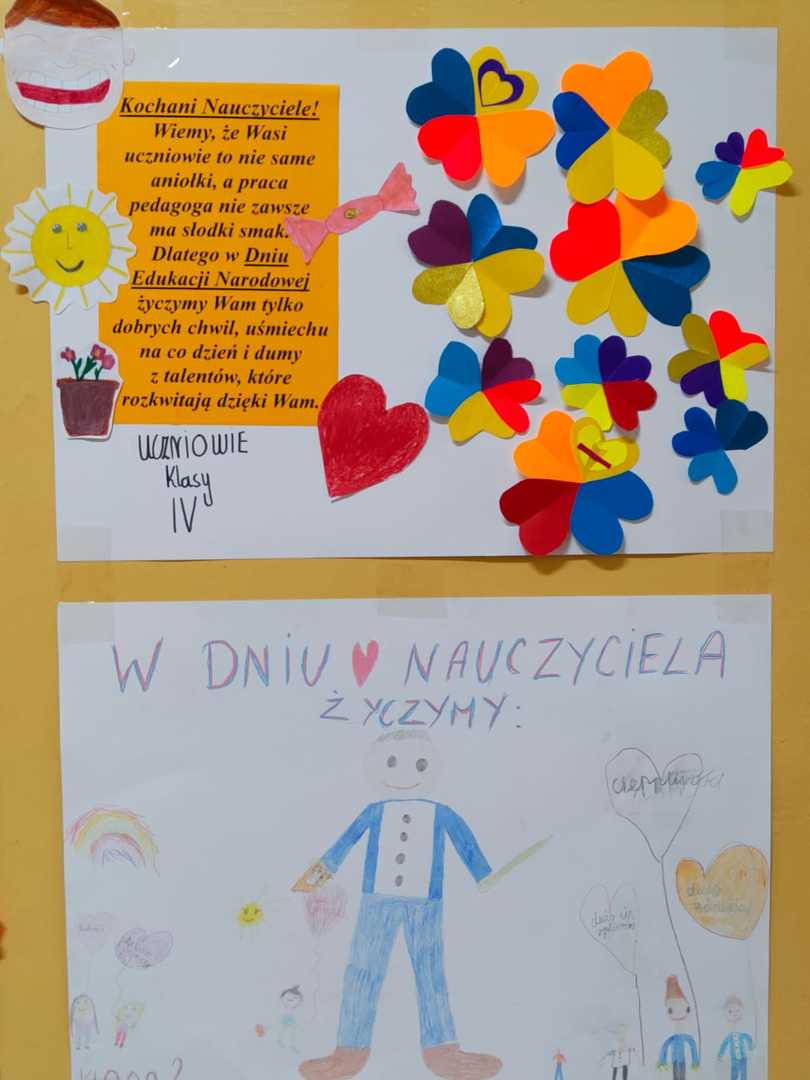 Kochani Nauczyciele!
Wiemy, że Wasi
uczniowie to nie same
aniołki, a praca
pedagoga nie zawsze
ma słodki smak.
Dlatego w Dniu
Edukacji Narodowej
życzymy Wam tylko
dobrych chwil, uśmiechu
na co dzień i dumy
z talentów, które
rozkwitają dzięki Wam.
UCZNIOWIE
Klasy
IV
W DNIU NAUCZYCIELA
ŻYCZYMY:
dużo
zdrowia